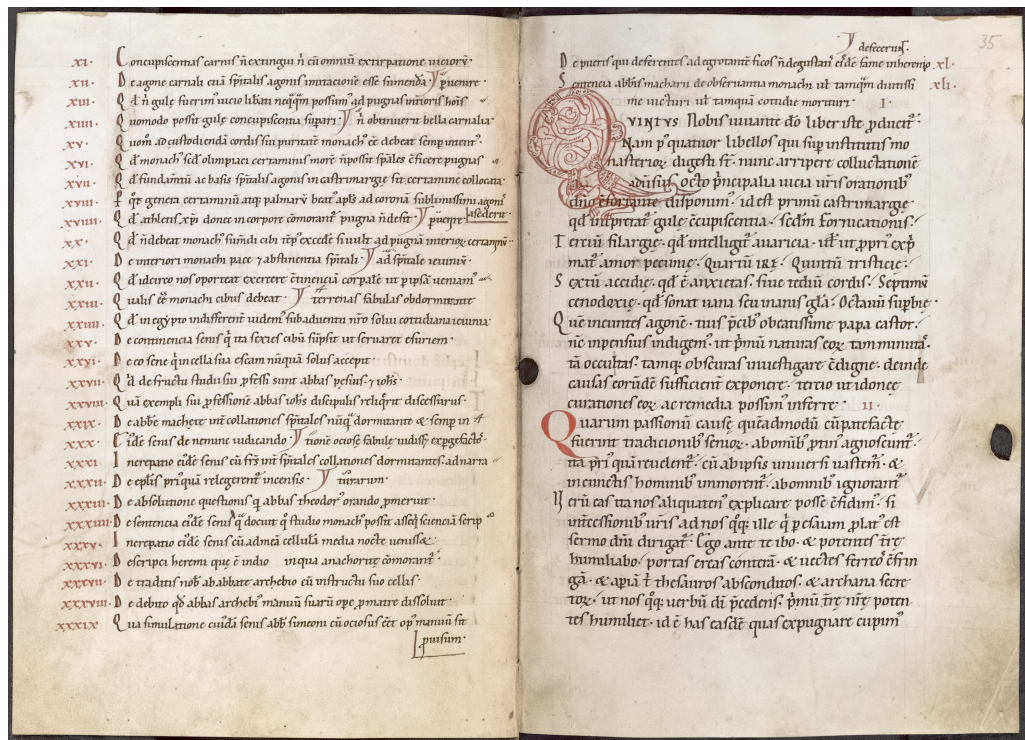 XI. Concupiscentias carnis ñ extingui ñ cũ omniũ extirpatione vicioꝝ.
XII. De agone carnali cuã spiritalis agonis imitacionẽ esse sumenda. puenire.
XIII. Qd ñ gule fuerim vicio
XIIII. Quomodo possit gule concupiscentia supari. ñ obtinuerit bella carnalia.
XV. Quom ad custodienda cordis sui puritatẽ monach eẽ debeat semp intent.
XVI. Qd monach sed olimpiaci certaminis morẽ ñ possit spales efficere pugnas
XVII. Qd fundamtũ ac basis spitalis agonis in castrimargie sit certamine collocata.
XVIII. Qr genera certaminũ atq palmarũ beat apls ad corona sublimissimi agoni
XVIIII. Qd athleta xpi donec in corpore comorant pugna ñ desit. puenire ascederit
XX. Qd ñ debeat monach sumdi cibi tep excede si vult ad pugna interior certaminũ
XXI. De interiori monachi pace & abstinentia spitali. ad spitale ieiuniũ.
XXII. Qd idcirco nos oporteat exercere ctinencia corpale ut p ipsa veniam
XXIII. Qualis eẽ monachi cibus debeat. terrenas fabulas obdormitante
XXIIII. Qd in egypto indifferent videm sub adventu nro solui cottidiana ieiunia.
XXV. De continencia senis q ita sexies cibũ sũpsit ut servaret esuriem.
XXVI. De eo sene q in cella sua escam nũquã solus accepit.
XXVII. Qd de fructu studii sui pfessi sunt abbas pesius & iohs.
XXVIII. Quã exempli sui pfessionẽ abbas iohs discipulis reliqrit discessurus.
XXIX. De abbẽ machete int collationes spitales nũq dormitante & semp in
XXX. Eide senis de nemine iudicando. tionẽ ociose fabule
XXXI. Increpatio eide senis cũ frs int spitales collationes dormitantes. ad narra
XXXII. De eplis pri quã relegerent incensis. turarum.
XXXIII. De absolutione questionis q abbas theodor orando pmeruit.
XXXIIII. De sentencia eide senis q docuit q studio monach possit asseq scienciã scrip
XXXV. Increpatio eide senis cũ ad mea cellulã media nocte venisse
XXXVI. Descripci heremi que ẽ in dio in qua anachorite cõmorant.
XXXVII. De traditis nob ab abbate archebio cũ instructu suo cellis.
XXXVIII. De debito qd abbas archebi manuũ suarũ ope p matre dissoluit.
XXXIX. Qua simulatione cuida senis abb simeoni cũ ociosus eet op manuũ sit
puisum.
35
defecerint.
De pueris qui deferentes ad egrotante ficos ñ degustati eide fame inheremo XL.
Sentencia abbis macharii de observantia monachi ut tamqm diutissi XLI.
me victuri ut tamquã cotidie morituri I.
QVINTVS Nobis iuvante dõ liber iste pducit.
Nam p quatuor libellos qui sup institutis mo
nasterioꝝ digesti st. nunc arripere colluctationẽ
adũsus octo principalia vicia vris orationib
dño cfortante disponim. id est primũ castrimargie
qd interptat gule ccupiscentia. secdm fornicationis.
Terciũ filargie. qd intelligit avaricia. ut ut propri exp
mat amor pecunie. Quartũ ire. Quintũ tristicie.
Sextũ accidie. qd ẽ anxietas. sive tediũ cordis. Septimũ
cenodoxie. qd sonat vana seu inanis gla. Octavũ supbie.
Que ineuntes agonẽ. tuis pcib obeatissime papa castor.
nc inpensius indigem. ut pmũ naturas eoꝝ tam minuta
ta occultas. tamq obscuras investigare cdigne. deinde
causas eorũde sufficient exponere. tercio ut idonee
curationes eoꝝ ac remedia possim inferre. II.
Quarum passionũ cause quẽadmodũ cũ patefacte
fuerint tradicionib senioꝝ. ab omib ptin agnoscunt.
ita pri quã revelent. cũ ab ipsis universi vastem. &
in cunctis hominib immorent. ab omnib ignorant
Verũ cas ita nos aliquaten explicare posse cfidim. si
intcessionib vris ad nos qq ille q p esaiam plat est
sermo dni dirigat. Ego ante te ibo. & potentes tre
humiliabo. portas ereas contera. & vectes ferreos cfrin
gã. & apiã t thesauros absconditos. & archana secre
toꝝ. ut nos qq verbũ di pcedens. pmũ tre nre poten
tes humiliet. id ẽ has easde quas expugnare cupim